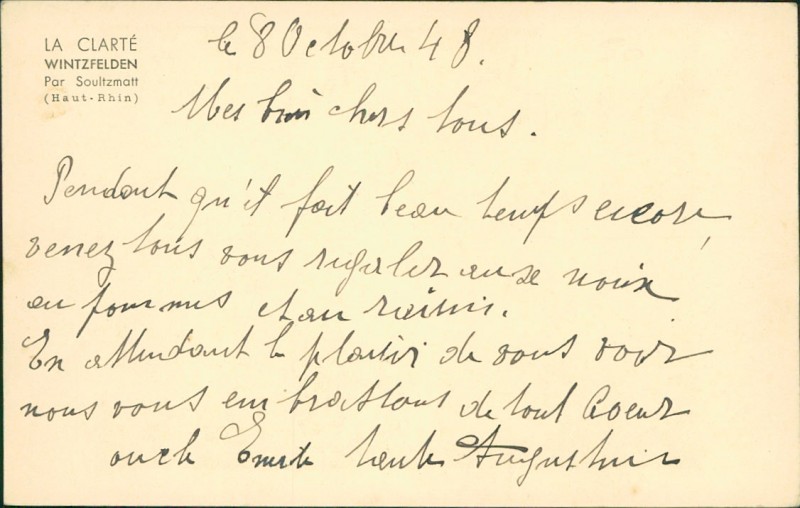 LA CLARTÉ
WINTZFELDEN
Par Soultzmatt
(Haut-Rhin)
le 8 Octobre 48.
Mes bien chers tous.
Pendant qu'il fait beau temps encore,
venez tous vous régaler aux noix
au pommes et au raisins.
En attendant le plaisir de vous voir
nous vous embrassons de tout Coeur
oncle Emile tante Augustine